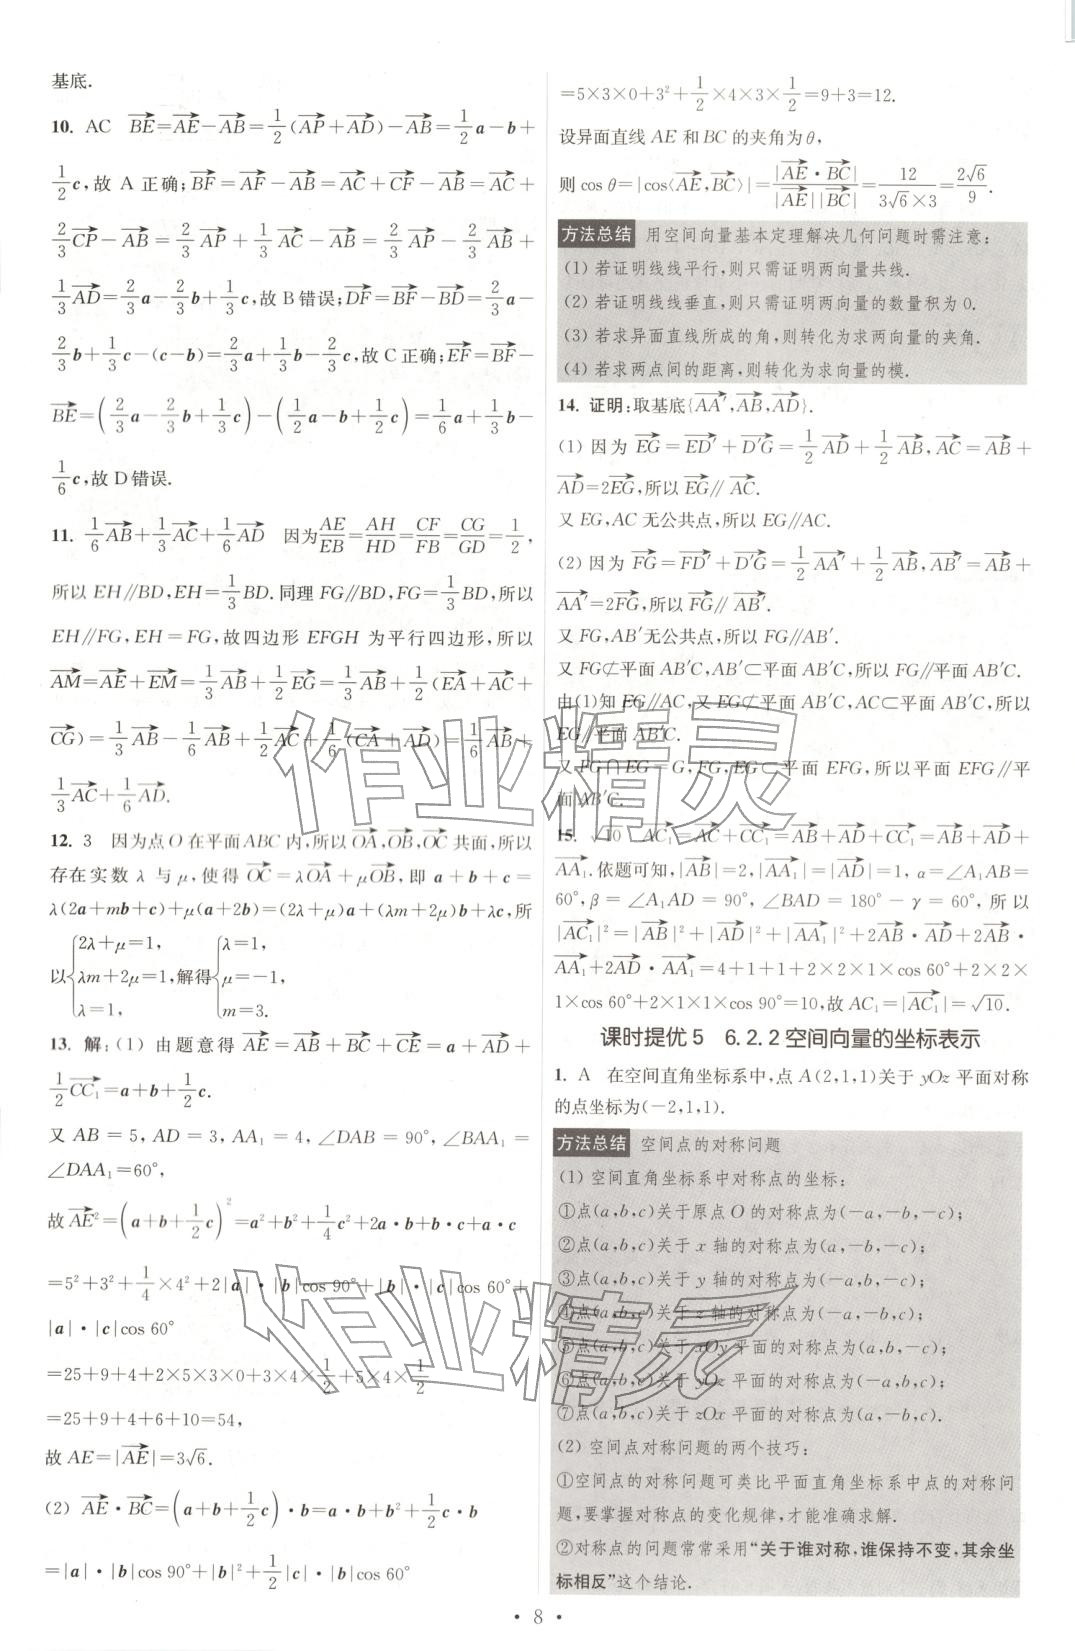 基底.
10. AC $\overrightarrow{BE}=\overrightarrow{AE}-\overrightarrow{AB}=\frac{1}{2}(\overrightarrow{AP}+\overrightarrow{AD})-\overrightarrow{AB}=\frac{1}{2}a-b+$
$\frac{1}{2}c$,故 A 正确;$\overrightarrow{BF}=\overrightarrow{AF}-\overrightarrow{AB}=\overrightarrow{AC}+\overrightarrow{CF}-\overrightarrow{AB}=\overrightarrow{AC}+$
$\frac{2}{3}\overrightarrow{CP}-\overrightarrow{AB}=\frac{2}{3}\overrightarrow{AP}+\frac{1}{3}\overrightarrow{AC}-\overrightarrow{AB}=\frac{2}{3}\overrightarrow{AP}-\frac{2}{3}\overrightarrow{AB}+$
$\frac{1}{3}\overrightarrow{AD}=\frac{2}{3}a-\frac{2}{3}b+\frac{1}{3}c$,故 B 错误;$\overrightarrow{DF}=\overrightarrow{BF}-\overrightarrow{BD}=\frac{2}{3}a-$
$\frac{2}{3}b+\frac{1}{3}c-(c-b)=\frac{2}{3}a+\frac{1}{3}b-\frac{2}{3}c$,故 C 正确;$\overrightarrow{EF}=\overrightarrow{BF}-$
$\overrightarrow{BE}=\left(\frac{2}{3}a-\frac{2}{3}b+\frac{1}{3}c\right)-\left(\frac{1}{2}a-b+\frac{1}{2}c\right)=\frac{1}{6}a+\frac{1}{3}b-$
$\frac{1}{6}c$,故 D 错误.
11. $\frac{1}{6}\overrightarrow{AB}+\frac{1}{3}\overrightarrow{AC}+\frac{1}{6}\overrightarrow{AD}$ 因为$\frac{AE}{EB}=\frac{AH}{HD}=\frac{CF}{FB}=\frac{CG}{GD}=\frac{1}{2}$,
所以 EH∥BD,EH=$\frac{1}{3}$BD.同理 FG∥BD,FG=$\frac{1}{3}$BD,所以
EH∥FG,EH=FG,故四边形 EFGH 为平行四边形,所以
$\overrightarrow{AM}=\overrightarrow{AE}+\overrightarrow{EM}=\frac{1}{3}\overrightarrow{AB}+\frac{1}{2}\overrightarrow{EG}=\frac{1}{3}\overrightarrow{AB}+\frac{1}{2}(\overrightarrow{EA}+\overrightarrow{AC}+$
$\overrightarrow{CG})=\frac{1}{3}\overrightarrow{AB}-\frac{1}{6}\overrightarrow{AB}+\frac{1}{2}\overrightarrow{AC}+\frac{1}{6}(\overrightarrow{CA}+\overrightarrow{AD})=\frac{1}{6}\overrightarrow{AB}+$
$\frac{1}{3}\overrightarrow{AC}+\frac{1}{6}\overrightarrow{AD}$.
12. 3 因为点 O 在平面 ABC 内,所以$\overrightarrow{OA},\overrightarrow{OB},\overrightarrow{OC}$共面,所以
存在实数 λ 与 μ,使得 $\overrightarrow{OC}=λ\overrightarrow{OA}+μ\overrightarrow{OB}$,即 a+b+c=
λ(2a+mb+c)+μ(a+2b)=(2λ+μ)a+(λm+2μ)b+λc,所
以$\begin{cases}2λ+μ=1,\\λm+2μ=1,\\λ=1,\end{cases}$解得$\begin{cases}λ=1,\\μ=-1,\\m=3.\end{cases}$
13. 解:(1) 由题意得 $\overrightarrow{AE}=\overrightarrow{AB}+\overrightarrow{BC}+\overrightarrow{CE}=a+\overrightarrow{AD}+$
$\frac{1}{2}\overrightarrow{CC_1}=a+b+\frac{1}{2}c$.
又 AB=5,AD=3,AA₁=4,∠DAB=90°,∠BAA₁=
∠DAA₁=60°,
故$\overrightarrow{AE}^2=\left(a+b+\frac{1}{2}c\right)^2=a^2+b^2+\frac{1}{4}c^2+2a·b+b·c+a·c$
$=5^2+3^2+\frac{1}{4}×4^2+2|a|·|b|\cos 90°+|b|·|c|\cos 60°+$
|a|·|c|cos 60°
$=25+9+4+2×5×3×0+3×4×\frac{1}{2}+5×4×\frac{1}{2}$
=25+9+4+6+10=54,
故 AE=$|\overrightarrow{AE}|=3\sqrt{6}$.
(2) $\overrightarrow{AE}·\overrightarrow{BC}=\left(a+b+\frac{1}{2}c\right)·b=a·b+b^2+\frac{1}{2}c·b$
$=|a|·|b|\cos 90°+|b|^2+\frac{1}{2}|c|·|b|\cos 60°$
$=5×3×0+3^2+\frac{1}{2}×4×3×\frac{1}{2}=9+3=12$.
设异面直线 AE 和 BC 的夹角为 θ,
则 $\cos θ=|\cos\langle\overrightarrow{AE},\overrightarrow{BC}\rangle|=\frac{|\overrightarrow{AE}·\overrightarrow{BC}|}{|\overrightarrow{AE}||\overrightarrow{BC}|}=\frac{12}{3\sqrt{6}×3}=\frac{2\sqrt{6}}{9}$.
方法总结 用空间向量基本定理解决几何问题时需注意:
(1) 若证明线线平行,则只需证明两向量共线.
(2) 若证明线线垂直,则只需证明两向量的数量积为 0.
(3) 若求异面直线所成的角,则转化为求两向量的夹角.
(4) 若求两点间的距离,则转化为求向量的模.
14. 证明:取基底{$\overrightarrow{AA'},\overrightarrow{AB},\overrightarrow{AD}$}.
(1) 因为 $\overrightarrow{EG}=\overrightarrow{ED'}+\overrightarrow{D'G}=\frac{1}{2}\overrightarrow{AD}+\frac{1}{2}\overrightarrow{AB},\overrightarrow{AC}=\overrightarrow{AB}+$
$\overrightarrow{AD}=2\overrightarrow{EG}$,所以 $\overrightarrow{EG}∥\overrightarrow{AC}$.
又 EG,AC 无公共点,所以 EG∥AC.
(2) 因为 $\overrightarrow{FG}=\overrightarrow{FD'}+\overrightarrow{D'G}=\frac{1}{2}\overrightarrow{AA'}+\frac{1}{2}\overrightarrow{AB},\overrightarrow{AB'}=\overrightarrow{AB}+$
$\overrightarrow{AA'}=2\overrightarrow{FG}$,所以 $\overrightarrow{FG}∥\overrightarrow{AB'}$.
又 FG,AB′无公共点,所以 FG∥AB′.
又 FG⊄平面 AB′C,AB′⊂平面 AB′C,所以 FG∥平面 AB′C.
由(1)知 EG∥AC,又 EG⊄平面 AB′C,AC⊂平面 AB′C,所以
EG∥平面 AB′C.
又 FG∩EG=G,FG,EG⊂平面 EFG,所以平面 EFG∥平
面 AB′C.
15. $\sqrt{10}$ $\overrightarrow{AC_1}=\overrightarrow{AC}+\overrightarrow{CC_1}=\overrightarrow{AB}+\overrightarrow{AD}+\overrightarrow{CC_1}=\overrightarrow{AB}+\overrightarrow{AD}+$
$\overrightarrow{AA_1}$.依题可知,$|\overrightarrow{AB}|=2,|\overrightarrow{AA_1}|=|\overrightarrow{AD}|=1$,α=∠A₁AB=
60°,β=∠A₁AD=90°,∠BAD=180°-γ=60°,所以
$|\overrightarrow{AC_1}|^2=|\overrightarrow{AB}|^2+|\overrightarrow{AD}|^2+|\overrightarrow{AA_1}|^2+2\overrightarrow{AB}·\overrightarrow{AD}+2\overrightarrow{AB}·$
$\overrightarrow{AA_1}+2\overrightarrow{AD}·\overrightarrow{AA_1}=4+1+1+2×2×1×\cos 60°+2×2×$
1×cos 60°+2×1×1×cos 90°=10,故 AC₁=$|\overrightarrow{AC_1}|=\sqrt{10}$.
课时提优 5 6.2.2 空间向量的坐标表示
1. A 在空间直角坐标系中,点 A(2,1,1)关于 yOz 平面对称
的点坐标为(-2,1,1).
方法总结 空间点的对称问题
(1) 空间直角坐标系中对称点的坐标:
①点(a,b,c)关于原点 O 的对称点为(-a,-b,-c);
②点(a,b,c)关于 x 轴的对称点为(a,-b,-c);
③点(a,b,c)关于 y 轴的对称点为(-a,b,-c);
④点(a,b,c)关于 z 轴的对称点为(-a,-b,c);
⑤点(a,b,c)关于 xOy 平面的对称点为(a,b,-c);
⑥点(a,b,c)关于 yOz 平面的对称点为(-a,b,c);
⑦点(a,b,c)关于 zOx 平面的对称点为(a,-b,c).
(2) 空间点对称问题的两个技巧:
①空间点的对称问题可类比平面直角坐标系中点的对称问
题,要掌握对称点的变化规律,才能准确求解.
②对称点的问题常常采用“关于谁对称,谁保持不变,其余坐
标相反”这个结论.
· 8 ·
作业精灵
作业精灵